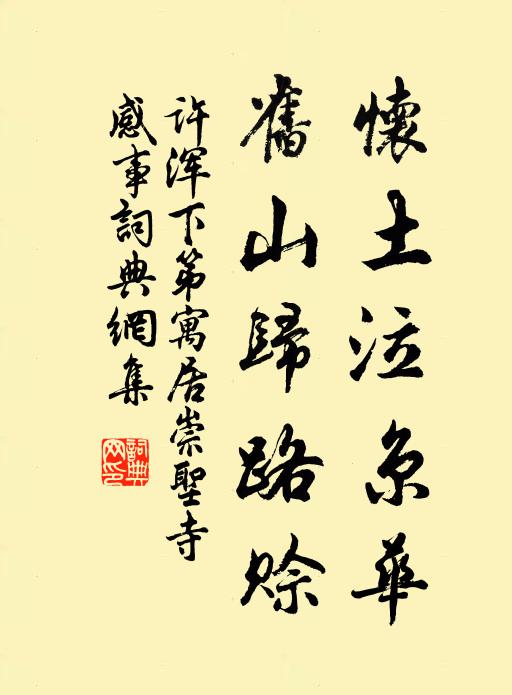 懷土泣京華
舊山歸路賒
许浑下第寓居崇聖寺
感事詞典網集
詞典网印